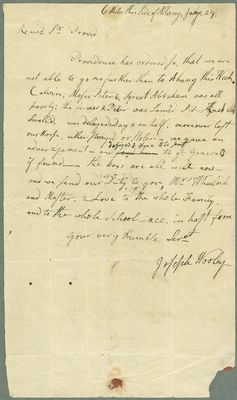 6 Miles this side of Albany, July 24.
Revd Sr
Providence has ordered so, that we are
not able to go no further than to Albany this Week
Calvin, Moses, Peter & Great Abraham was all
poorly;
Swelled, was delayed a day & an half, moreover lost
our Horse either strayed or Stolen — we gave an
advertisement — and to ye General
if found — the boys are all well now —
and we send our Duty to you, Mrs Wheelock
and Master, — Love to the whole Family
and to the whole School — acc. in hast from
your very Humble Servt
Joseph Wooley